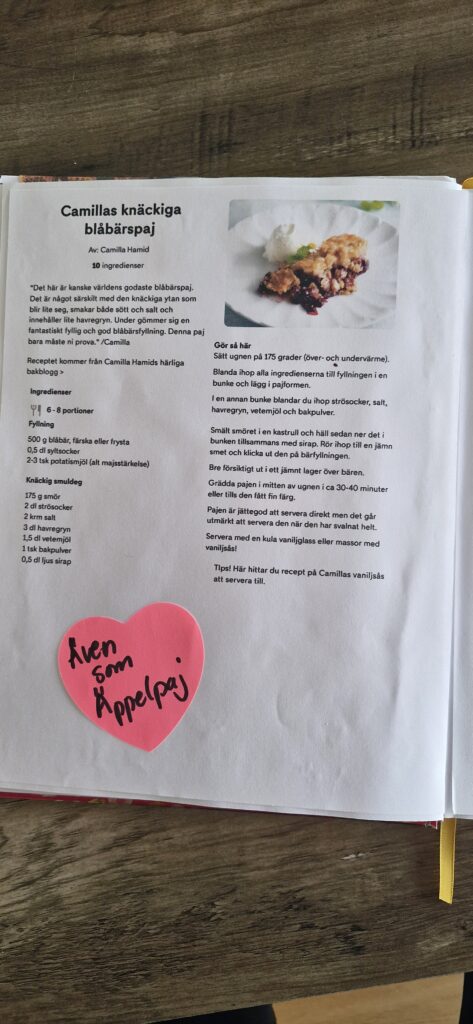 Camillas knäckiga
blåbärspaj
Av: Camilla Hamid
10 ingredienser
"Det här är kanske världens godaste blåbärspaj.
Det är något särskilt med den knäckiga ytan som
blir lite seg, smakar både sött och salt och
innehåller lite havregryn. Under gömmer sig en
fantastiskt fyllig och god blåbärsfyllning. Denna paj
bara måste ni prova." /Camilla
Receptet kommer från Camilla Hamids härliga
bakblogg >
Ingredienser
6 - 8 portioner
Fyllning
500 g blåbär, färska eller frysta
0,5 dl syltsocker
2-3 tsk potatismjöl (alt majsstärkelse)
Knäckig smuldeg
175 g smör
2 dl strösocker
2 krm salt
3 dl havregryn
1,5 dl vetemjöl
1 tsk bakpulver
0,5 dl ljus sirap
Gör så här
Sätt ugnen på 175 grader (över- och undervärme).
Blanda ihop alla ingredienserna till fyllningen i en
bunke och lägg i pajformen.
I en annan bunke blandar du ihop strösocker, salt,
havregryn, vetemjöl och bakpulver.
Smält smöret i en kastrull och häll sedan ner det i
bunken tillsammans med sirap. Rör ihop till en jämn
smet och klicka ut den på bärfyllningen.
Bre försiktigt ut i ett jämnt lager över bären.
Grädda pajen i mitten av ugnen i ca 30-40 minuter
eller tills den fått fin färg.
Pajen är jättegod att servera direkt men det går
utmärkt att servera den när den har svalnat helt.
Servera med en kula vaniljglass eller massor med
vaniljsås!
Tips! Här hittar du recept på Camillas vaniljsås
att servera till.
Även
som
Äppelpaj